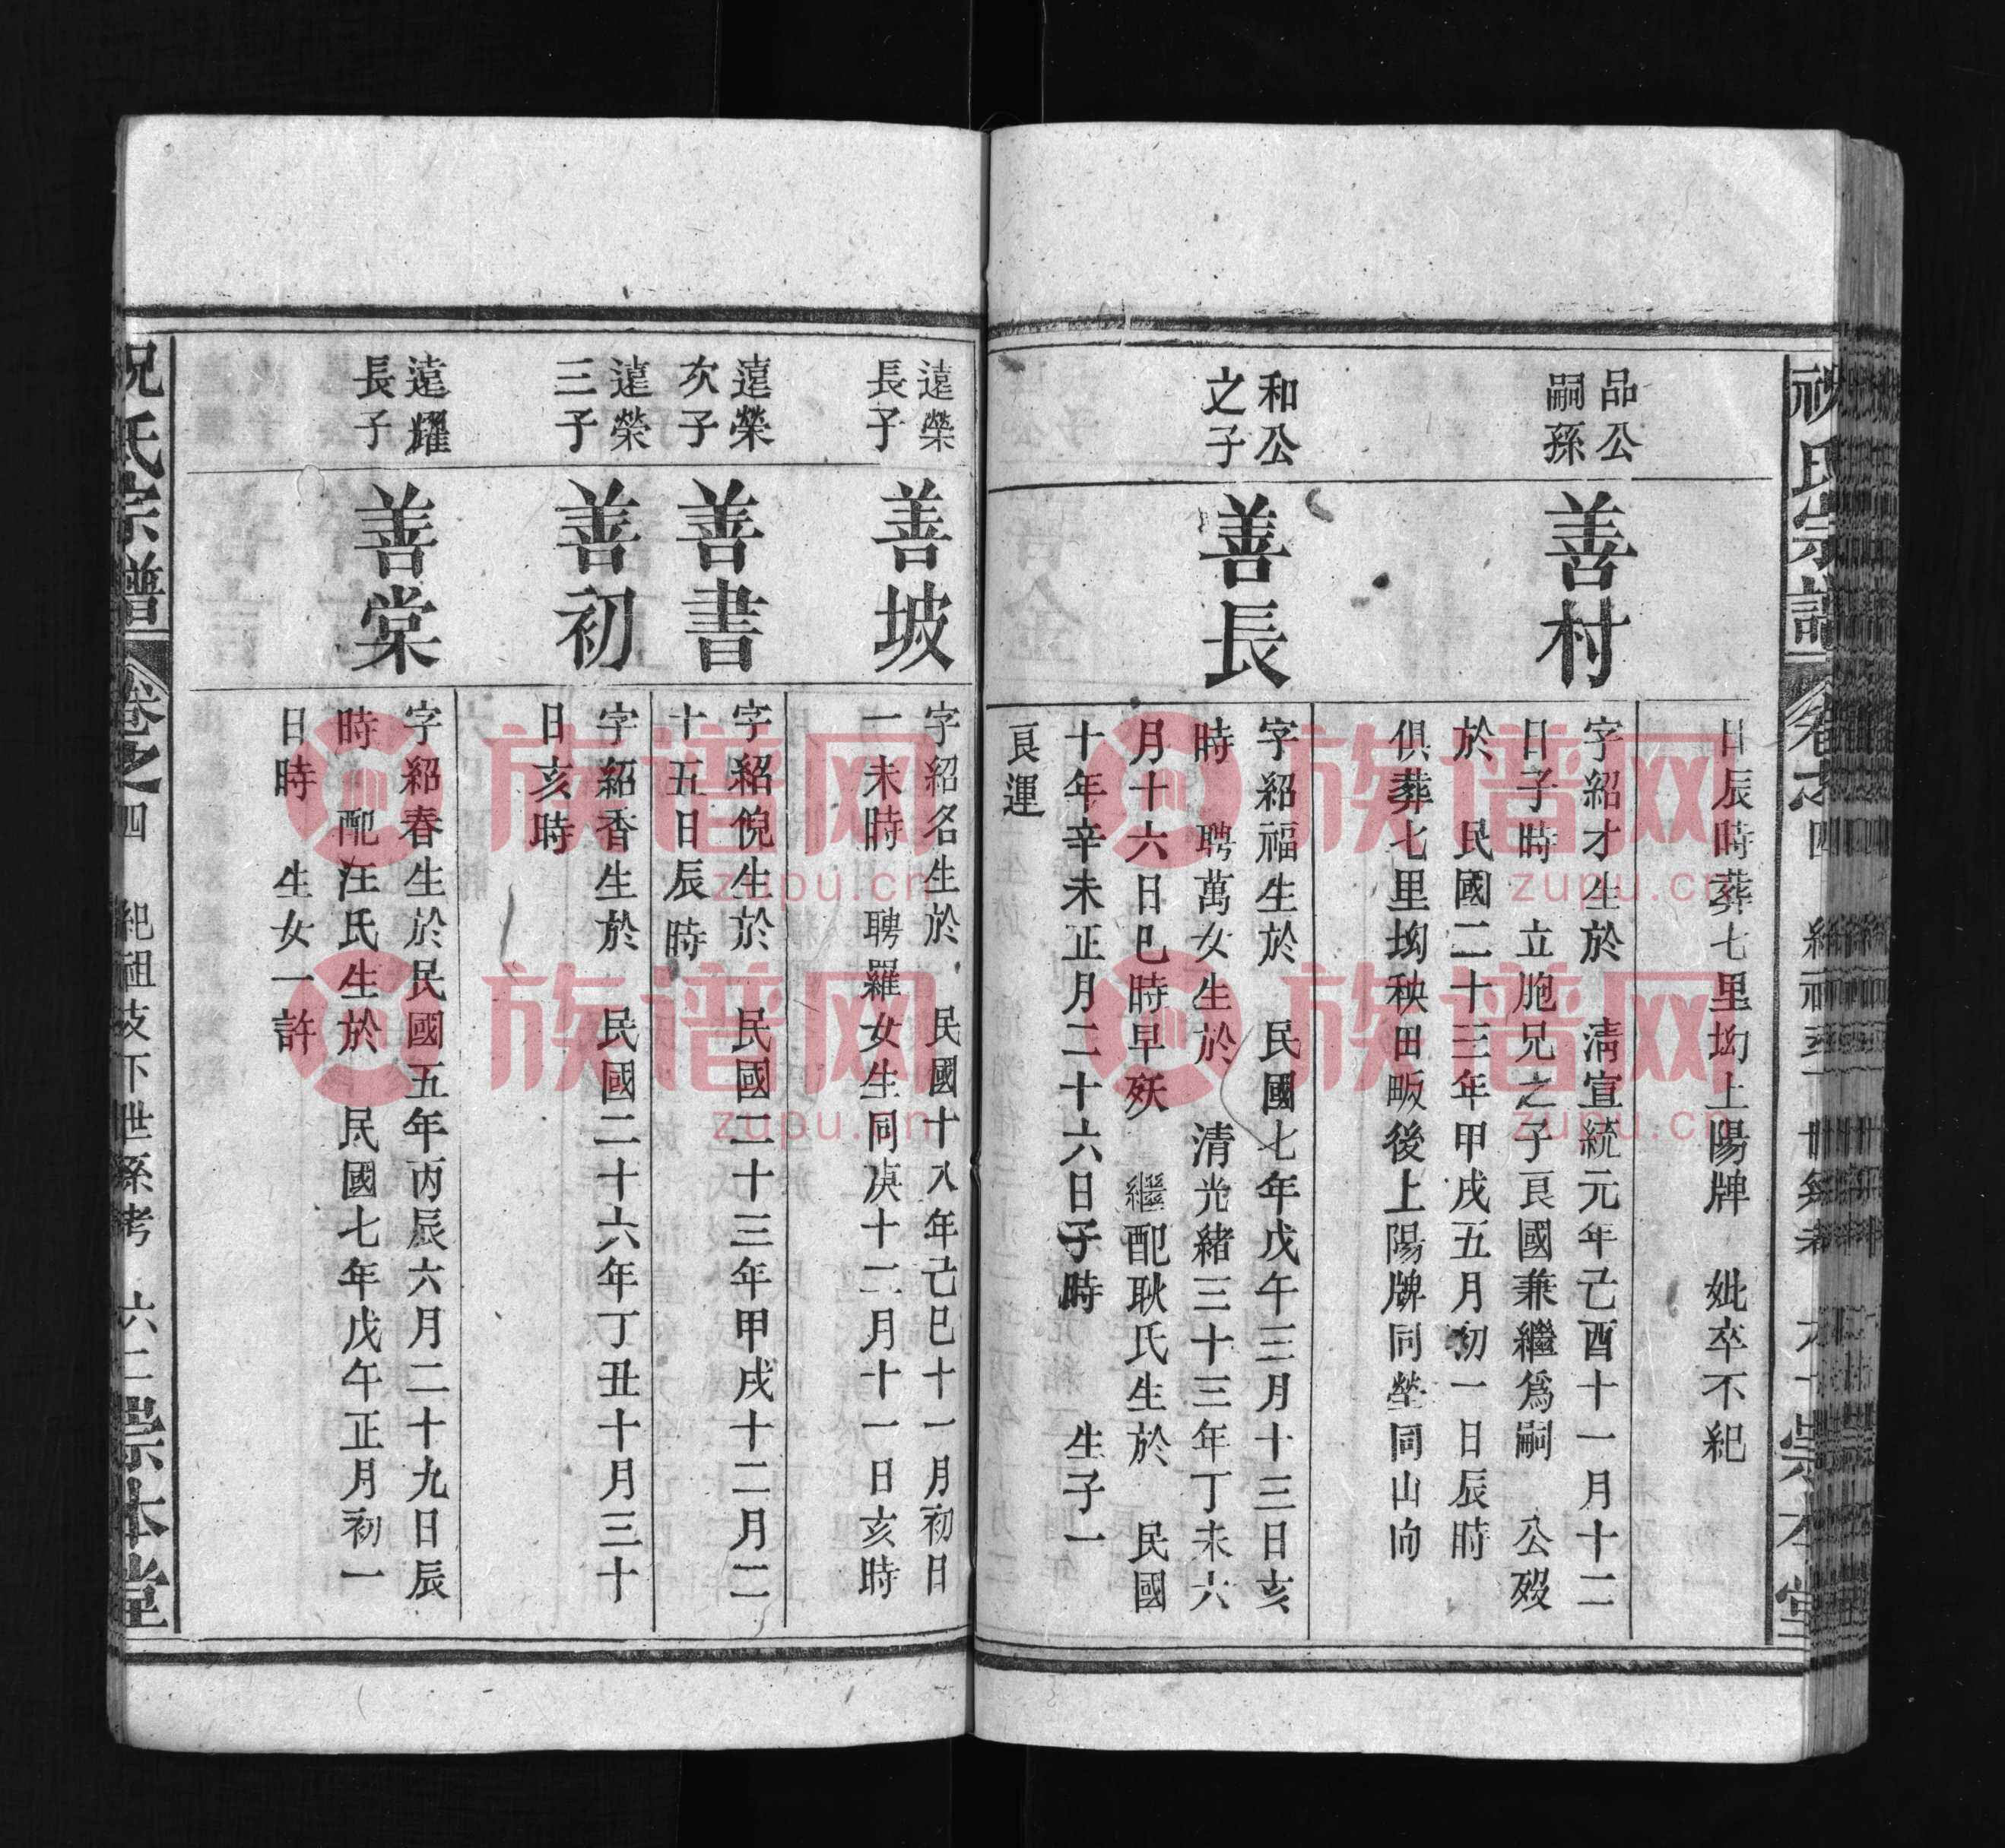 日辰時葬七里坳上陽牌　妣卒不紀
品公
嗣孫
善村
字紹才生於　清宣統元年己酉十一月十二
日子時　立胞兄之子良國兼繼爲嗣　公歿
於　民國二十三年甲戌五月初一日辰時
俱葬七里坳秧田畈後上陽牌同塋同山向
和公
之子
善長
字紹福生於　民國七年戊午三月十三日亥
時　聘萬女生於　清光緒三十三年丁未六
月十六日巳時早殀　繼配耿氏生於　民國
十年辛未正月二十六日子時　生子一
良運
遠榮
長子
善坡
字紹名生於　民國十八年己巳十一月初日
一未時　聘羅女生同庚十二月十一日亥時
遠榮
次子
善書
字紹倪生於　民國二十三年甲戌十二月二
十五日辰時
遠榮
三子
善初
字紹香生於　民國二十六年丁丑十月三十
日亥時
遠耀
長子
善棠
字紹春生於民國五年丙辰六月二十九日辰
時　配汪氏生於　民國七年戊午正月初一
日時　生女一許
祝氏宗譜　卷之四　紀祖支下世系考　六二　崇本堂
族谱网
zupu.cn
族谱网
zupu.cn
族谱网
zupu.cn
族谱网
zupu.cn